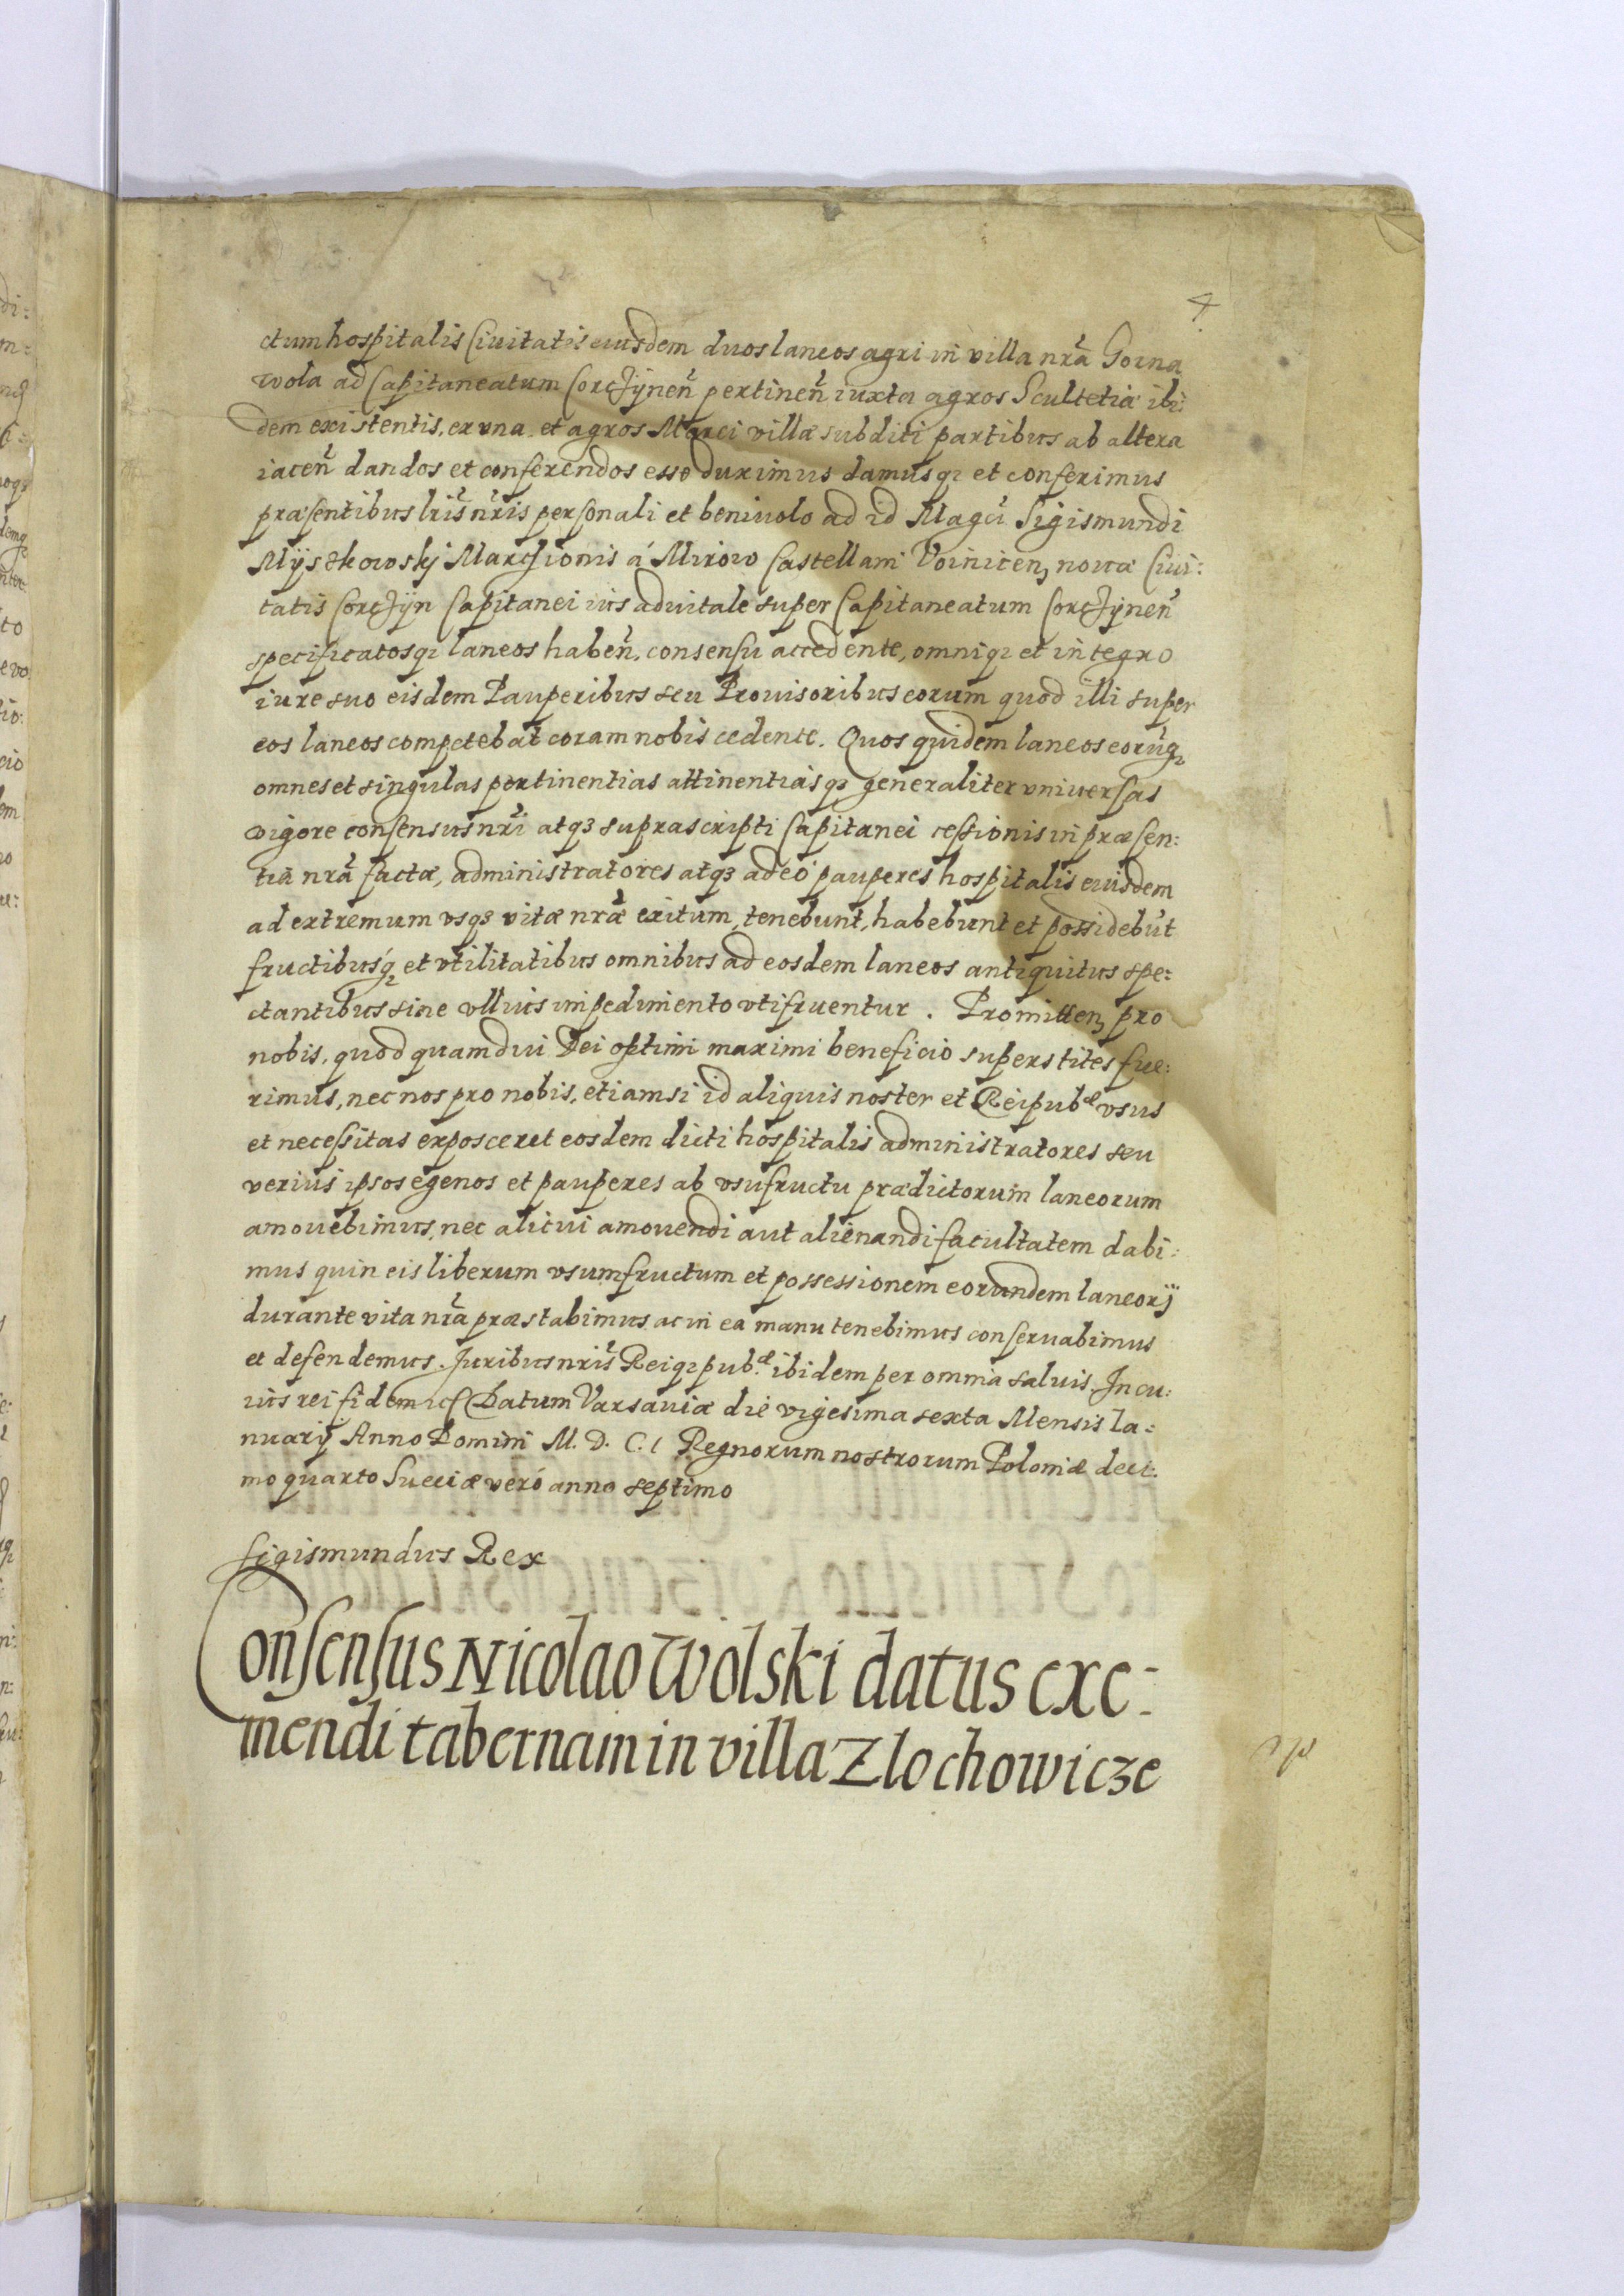 4
ctum hospitalis Ciuitatis eiusdem duos laneos agri in villa nrã Gorna
wola ad Capitaneatum Corcẏnen̄ pertinen̄ iuxta agros Scultetiæ ibi:
dem existentis, ex vna et agros Marci villæ subditi partibus ab altera
iacen̄ dandos et conferendos esse duximus damusqꝫ et conferimus
præsentibus lris̃ nris̃ personali et beniuolo ad id Magci Sigismundi
Mÿszkowskj Marchionis á Mirow Castellani Voinicenꝫ nouæ Ciui:
tatis Corcȷÿn Capitanei ius aduitale super Capitaneatum Corcȷÿnen̄
specificatosqꝫ laneos haben̄. consensu accedente, omniqꝫ et integro
iure suo eisdem Pauperibus seu Prouisoribus eorum quod illi super
eos laneos competebat coram nobis cedente. Quos quidem laneos eorũqꝫ
omnes et singulas pertinentias attinentiasqꝫ generaliter vniuersas
vigore consensus nrĩ atqꝫ suprascripti Capitanei cessionis in præsen:
tia nrã factæ, administratores atqꝫ adeo pauperes hospitalis eiusdem
ad extremum vsqꝫ vitæ nræ̃ exitum, tenebunt, habebunt et possidebũt
fructibusqꝫ et vtilitatibus omnibus ad eosdem laneos antiquitus spe:
ctantibus sine vllius impedimento vtifruentur. Promittenꝫ pro
nobis, quod quamdiu Dei optimi maximi beneficio superstites fue:
rimus, nec nos pro nobis, etiamsi id aliquis noster et Reipubᵆ vsus
et necessitas exposceret eosdem dicti hospitalis administratores seu
verius ipsos egenos et pauperes ab vsufructu prædictorum laneorum
amouebimus, nec alicui amouendi aut alienandi facultatem dabi:
mus quin eis liberum vsumfructum et possessionem eorundem laneorũ
durante vita nrã præstabimus ac in ea manu tenebimus conseruabimus
et defendemus. Juribus nris̃ Reiqꝫ pub.ᵆ ibidem per omnia saluis. In cu:
ius rei fidem Datum Varsauiæ die vigesima sexta Mensis Ia:
nuarÿ Anno Domini M. D. C. I Regnorum nostrorum Poloniæ deci:
mo quarto Sueciæ veró anno septimo
Sigismundus Rex
Consensus Nicolao Wolski datus exe:
mendi tabernam in villa Zlochowicze